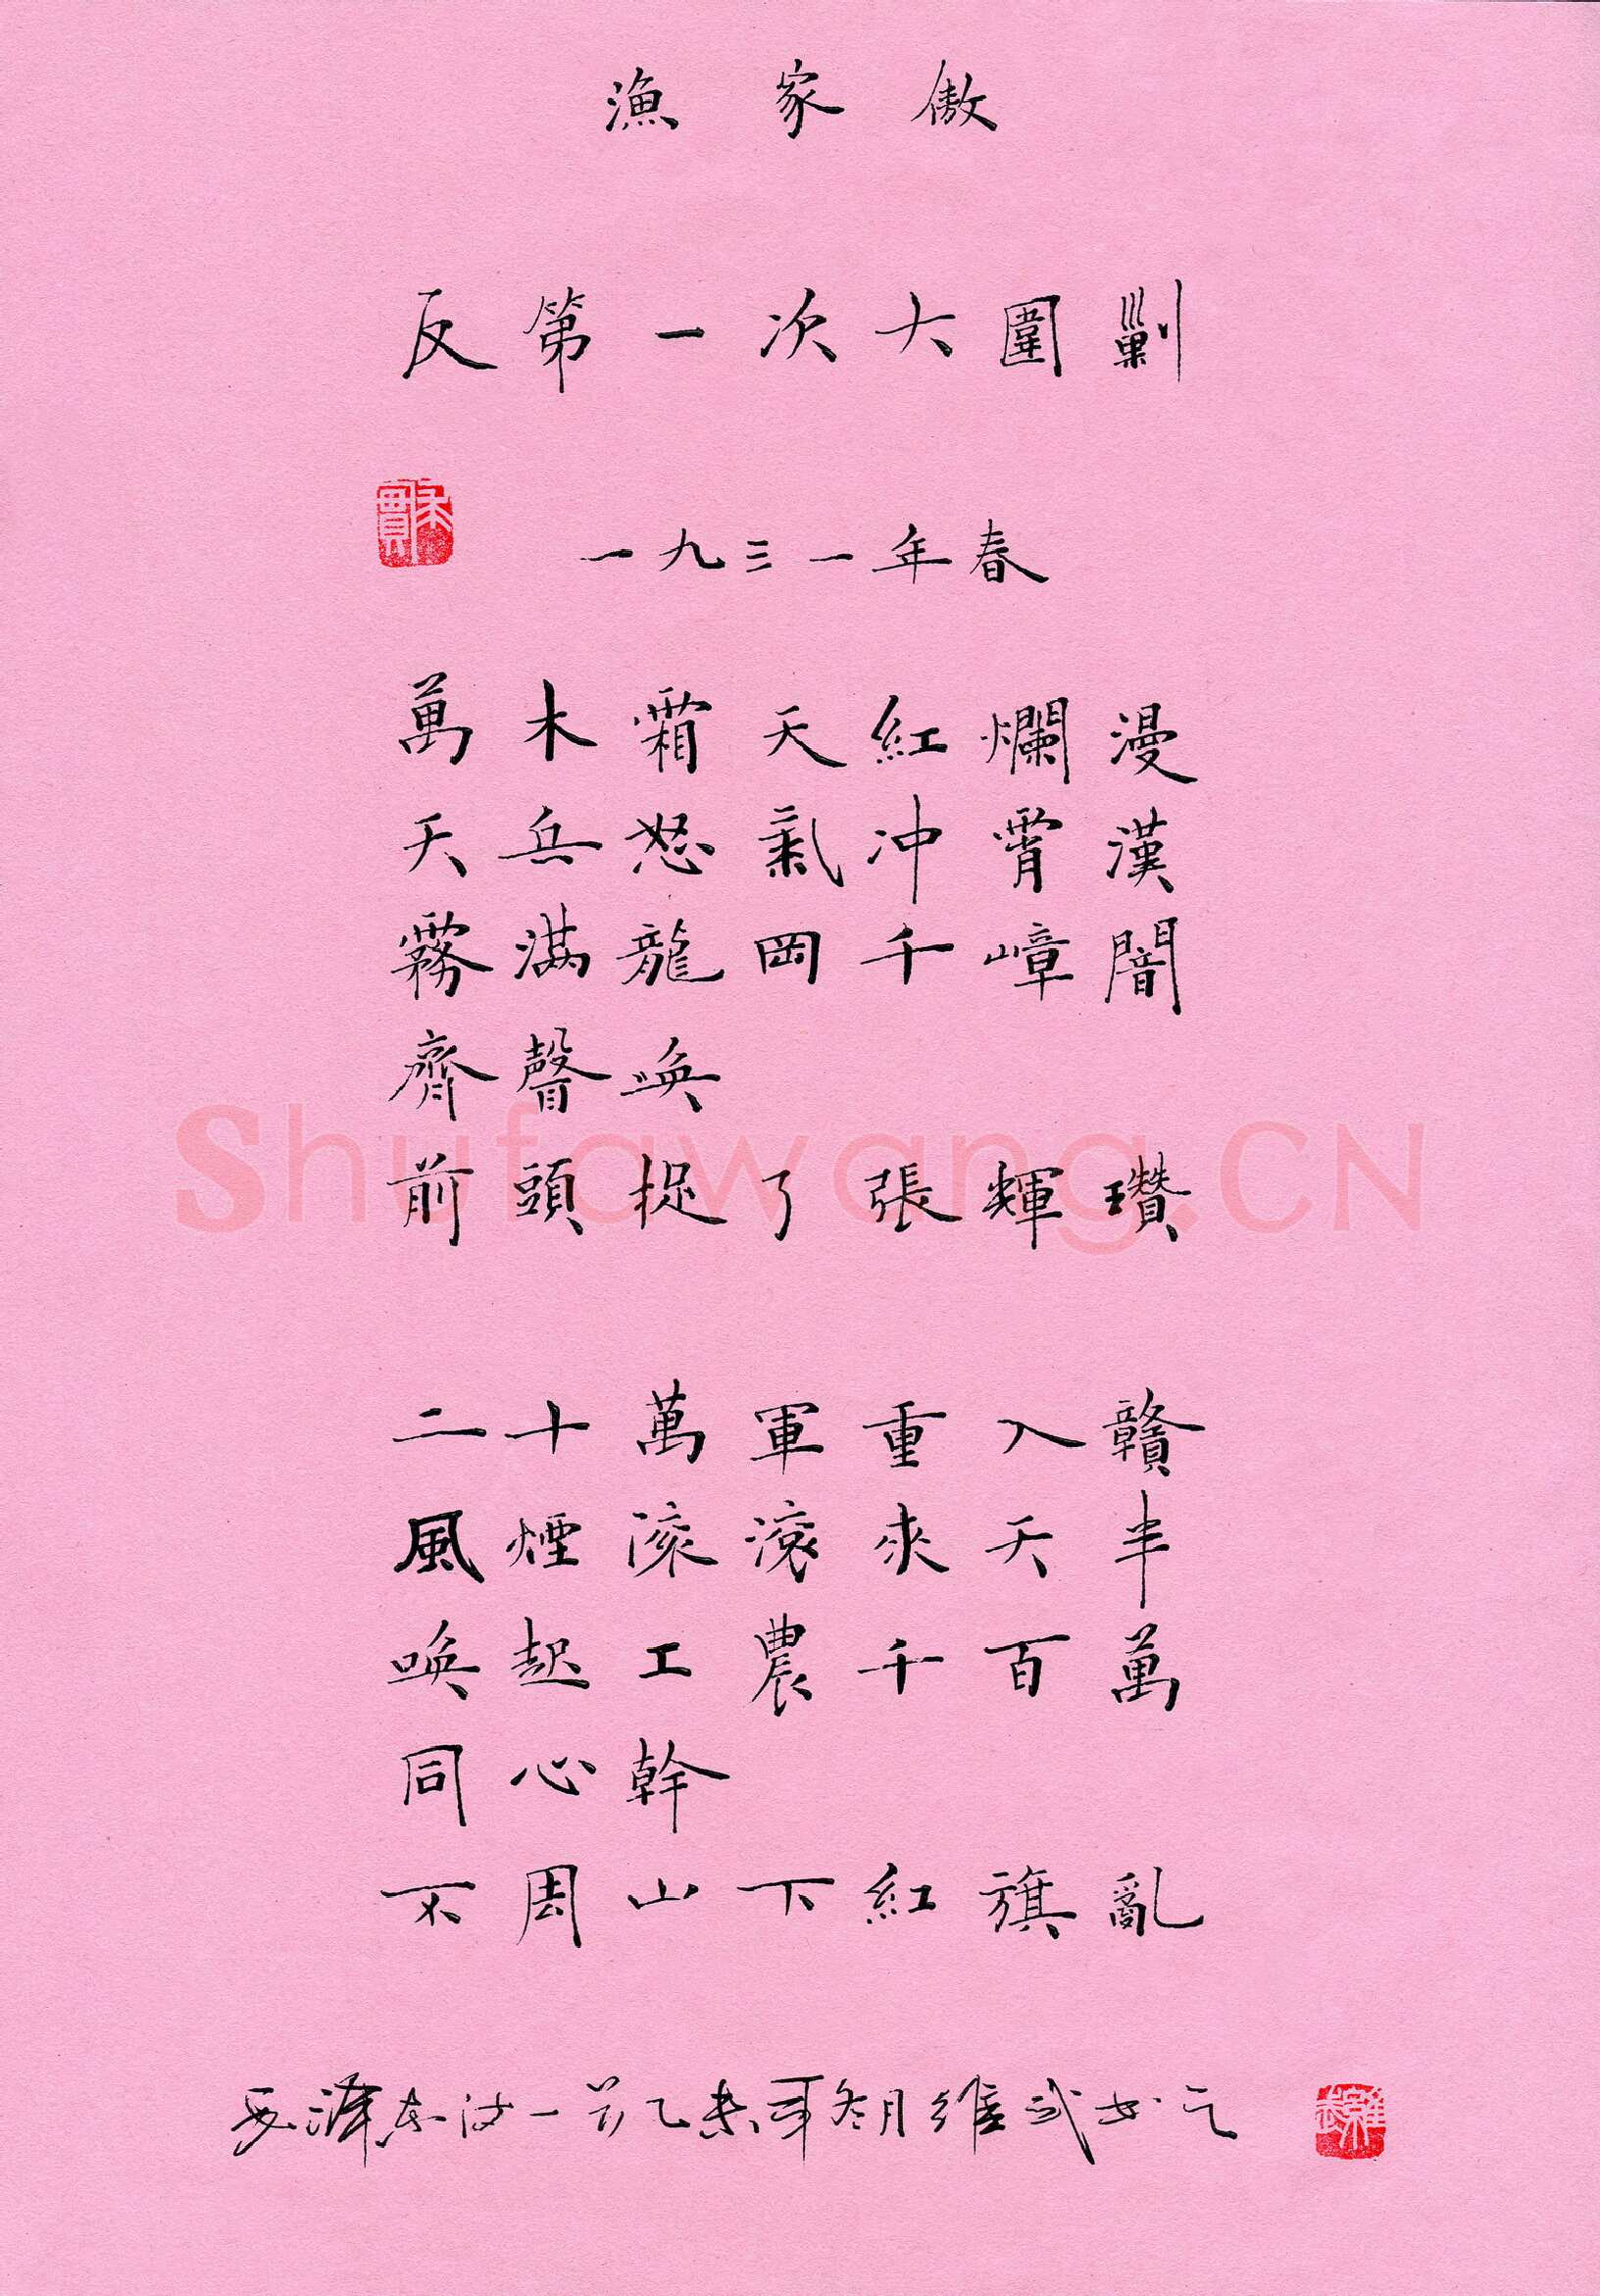 漁家傲
反第一次大圍剿
一九三一年春
萬木霜天紅爛漫
天兵怒氣冲霄漢
霧滿龍岡千嶂闇
齊聲喚
前頭捉了張輝瓚
二十萬軍重入贛
風煙滚滾來天半
喚起工農千百萬
同心幹
不周山下紅旗亂
毛澤東詩一首乙未年冬月維武书之
Shufawang.CN